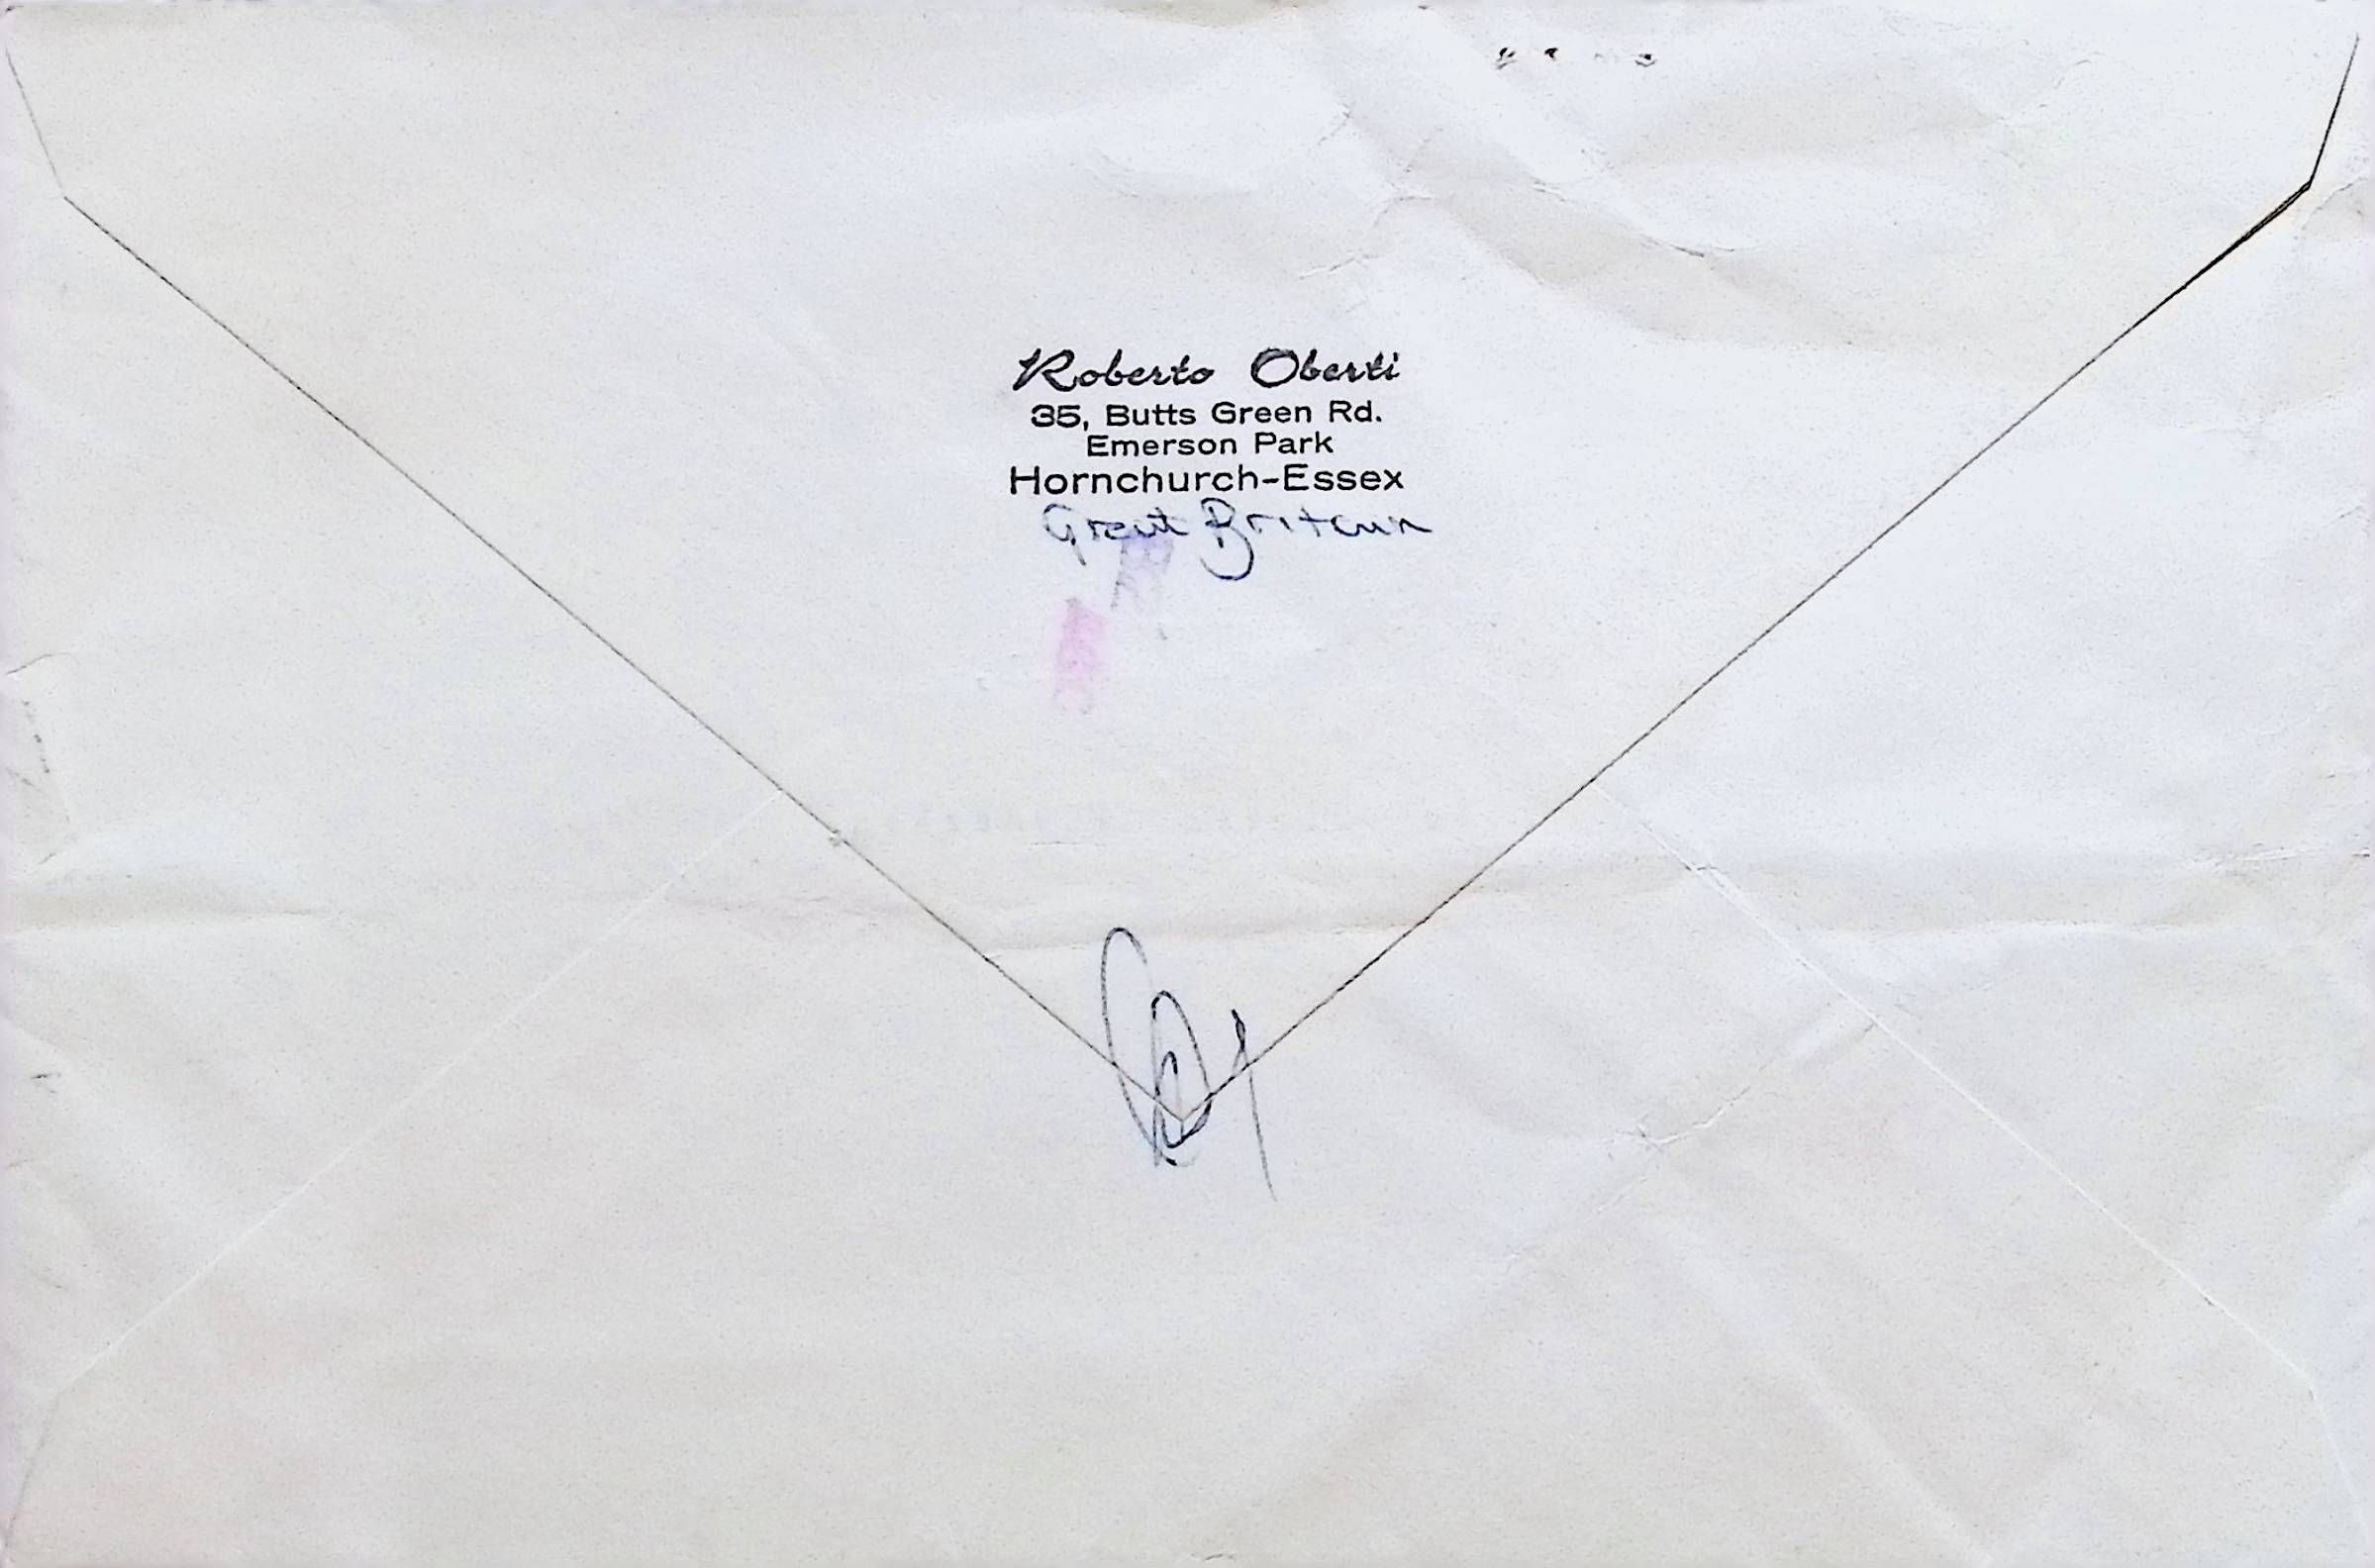 Roberto Oberti
35, Butts Green Rd.
Emerson Park
Hornchurch-Essex
Great Britain